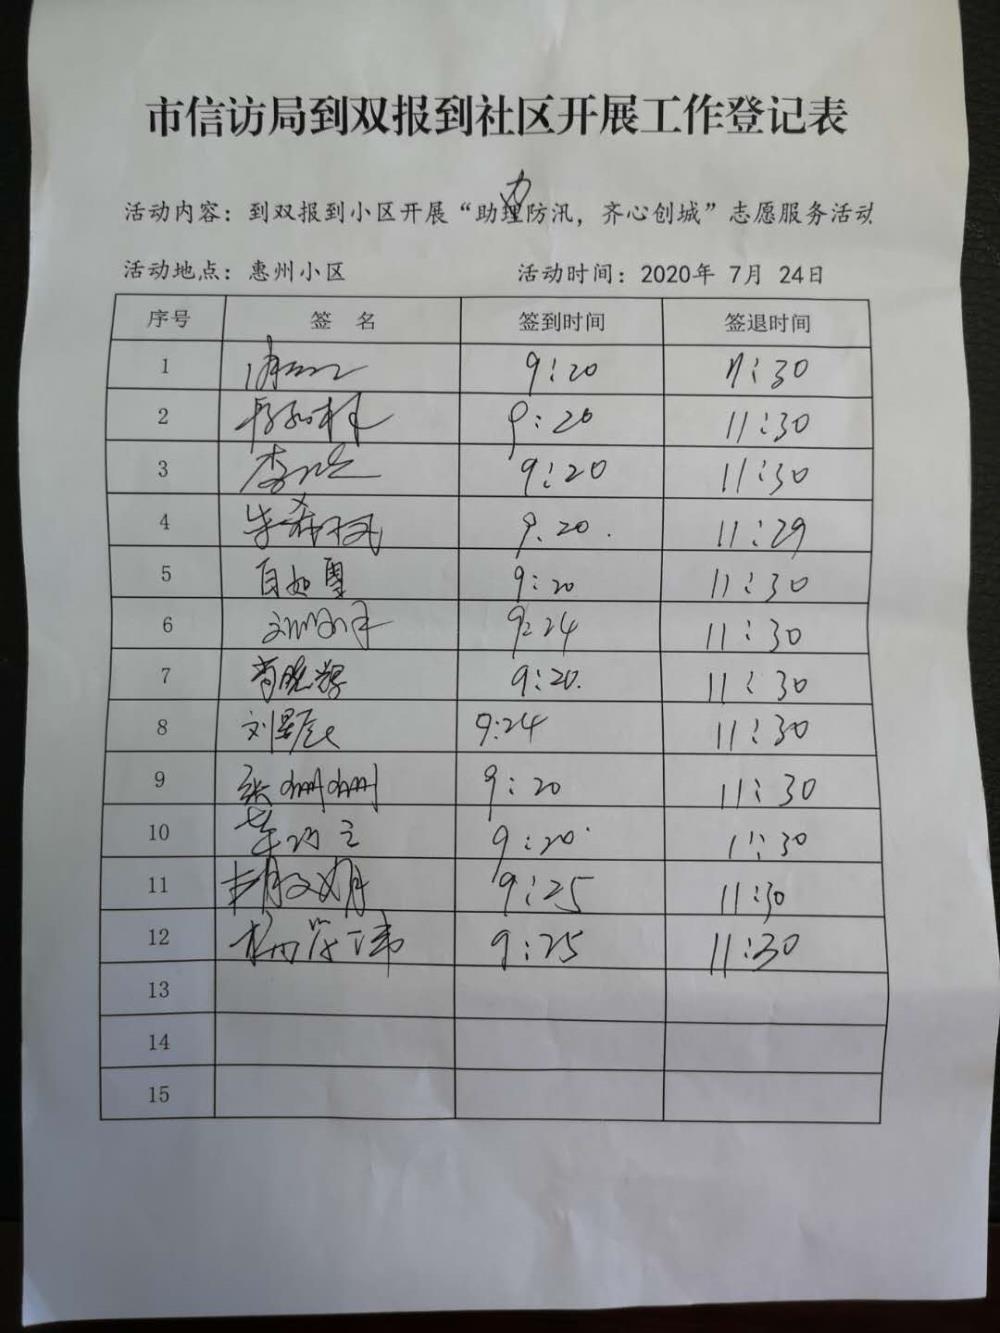 市信访局到双报到社区开展工作登记表
力
活动内容：到双报到小区开展“助理防汛，齐心创城”志愿服务活动
活动地点：惠州小区 活动时间：2020年 7月 24日
序号 签 名 签到时间 签退时间
1 9:20 11:30
2 9:20 11:30
3 9:20 11:30
4 9.20. 11:29
5 9:20 11:30
6 9:24 11:30
7 肖晓辉 9:20. 11:30
8 刘星辰 9:24 11:30
9 张姗姗 9:20 11:30
10 9:20 11:30
11 胡文娟 9:25 11:30
12 9:25 11:30
13
14
15